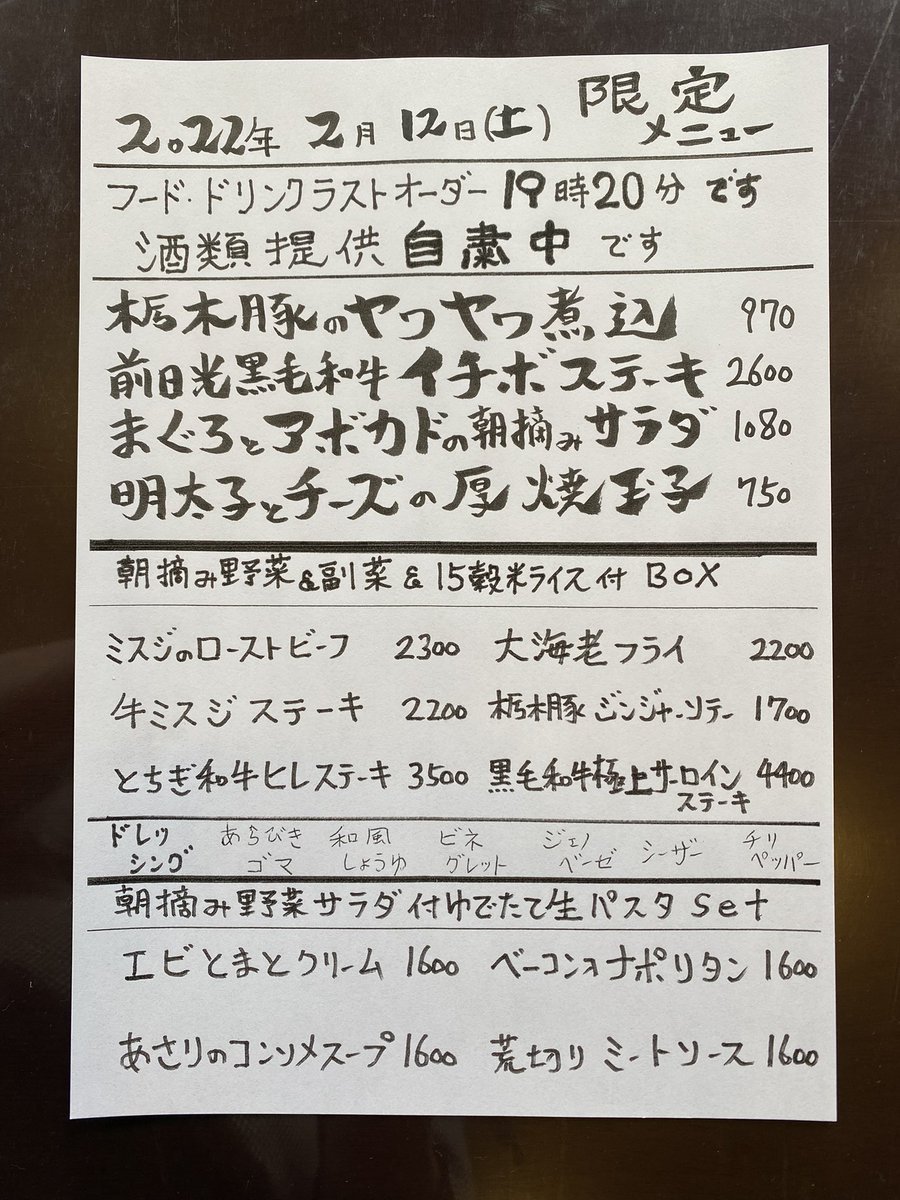 2022年 2月 12日(土) 限定メニュー
フード・ドリンクラストオーダー 19時20分 です
酒類提供 自粛中 です
栃木豚のヤワヤワ煮込 970
前日光黒毛和牛イチボステーキ 2600
まぐろとアボカドの朝摘みサラダ 1080
明太子とチーズの厚焼玉子 750
朝摘み野菜&副菜&15穀米ライス付 BOX
ミスジのローストビーフ 2300 大海老フライ 2200
牛ミスジステーキ 2200 栃木豚ジンジャーソテー 1700
とちぎ和牛ヒレステーキ 3500 黒毛和牛極上サーロインステーキ 4400
ドレッシング あらびきゴマ 和風しょうゆ ビネグレット ジェノベーゼ シーザー チリペッパー
朝摘み野菜サラダ付ゆでたて生パスタ Set
エビとまとクリーム 1600 ベーコン ナポリタン 1600
あさりのコンソメスープ 1600 荒切りミートソース 1600